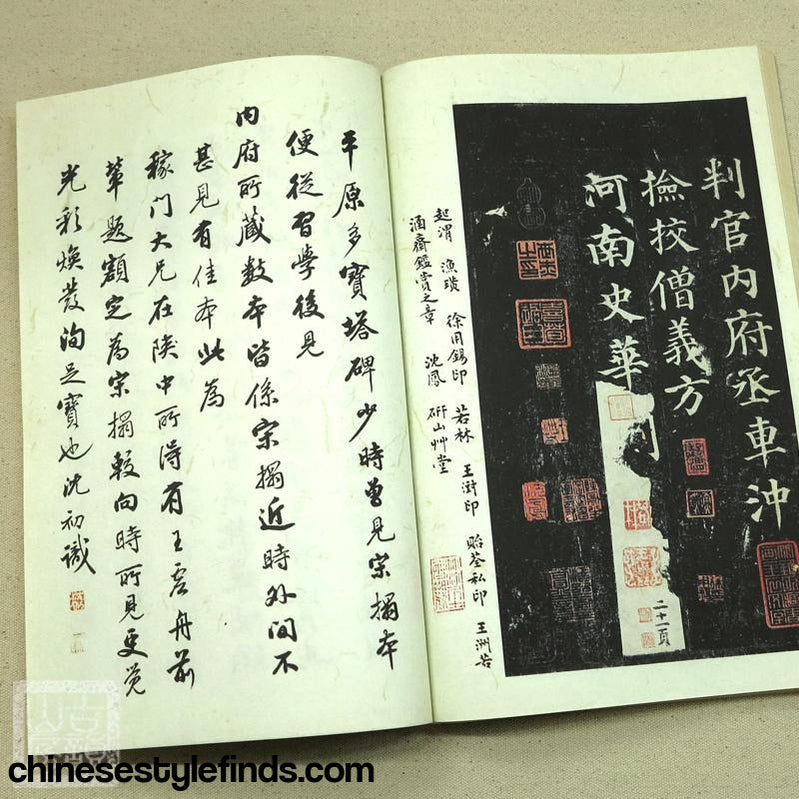 判官内府丞車沖
撿挍僧義方
河南史華
二十一頁
起渭 漁璜 徐用錫印 若林 王澍印 貽荃私印 王洲若
涵齋鑑賞之章 沈鳳 研山艸堂
平原多寶塔碑少時曾見宋搨本
便從習學後見
内府所藏數本皆係宋搨近時外间不
甚見有佳本此為
稼门大兄在陝中所得有王虛舟前
輩題額定為宋搨較向時所見更覚
光彩煥發洵足寶也沈初識
chinesestylefinds.com